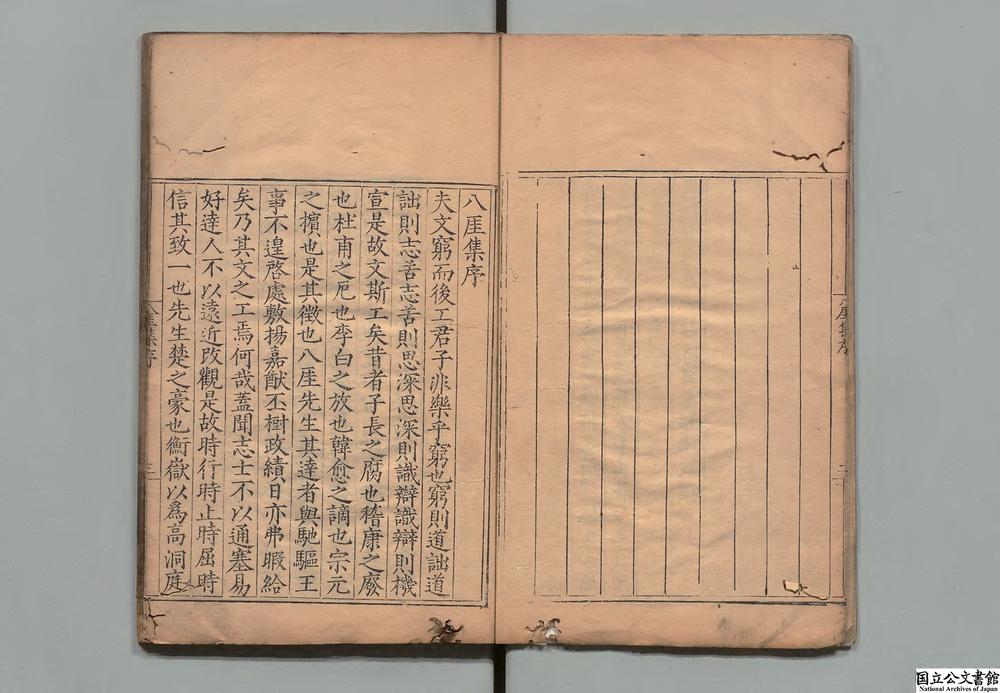 八厓集序
夫文窮而後工君子非樂乎窮也窮則道詘道
詘則志苦志苦則思深思深則識辯識辯則機
宣是故文斯工矣昔者子長之腐也嵇康之廢
也杜甫之厄也李白之放也韓愈之謫也宗元
之擯也是其徵也八厓先生其達者與馳驅王
事不遑啓處敷揚嘉猷丕樹政績日亦弗暇給
矣乃其文之工焉何哉蓋聞志士不以通塞易
好達人不以遠近改觀是故時行時止時屈時
信其致一也先生楚之豪也衡嶽以爲高洞庭
八厓集序
國立公文書館
National Archives of Japan